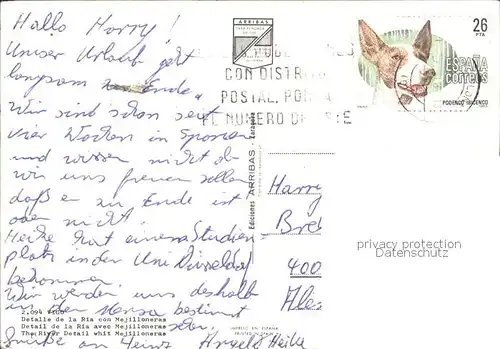 Hallo Harry!
Unser Urlaub geht
langsam zu Ende.
Wir sind schon seit
vier Wochen in Spanien
und wissen nicht ob
wir uns freuen sollen
daß er zu Ende ist
oder nicht!
Heike hat einen Studien
platz in der Uni Düsseldorf
bekommen.
Wir werden uns deshalb
in der Mensa bestimmt
sehn.
Grüße an Heinz
Angela Heike
2.094 - VIGO
Detalle de la Ría con Mejilloneras
Detail de la Ria avec Mejilloneras
The River Detail whit Mejilloneras
ARRIBAS
Ediciones ARRIBAS - Zaragoza
IMPRESO EN ESPAÑA
CON DISTRI
POSTAL, PON
EL NUMERO DE
26
PTA
ESPAÑA
CORREOS
PODENCO IBICENCO
Harry
400
privacy protection
Datenschutz